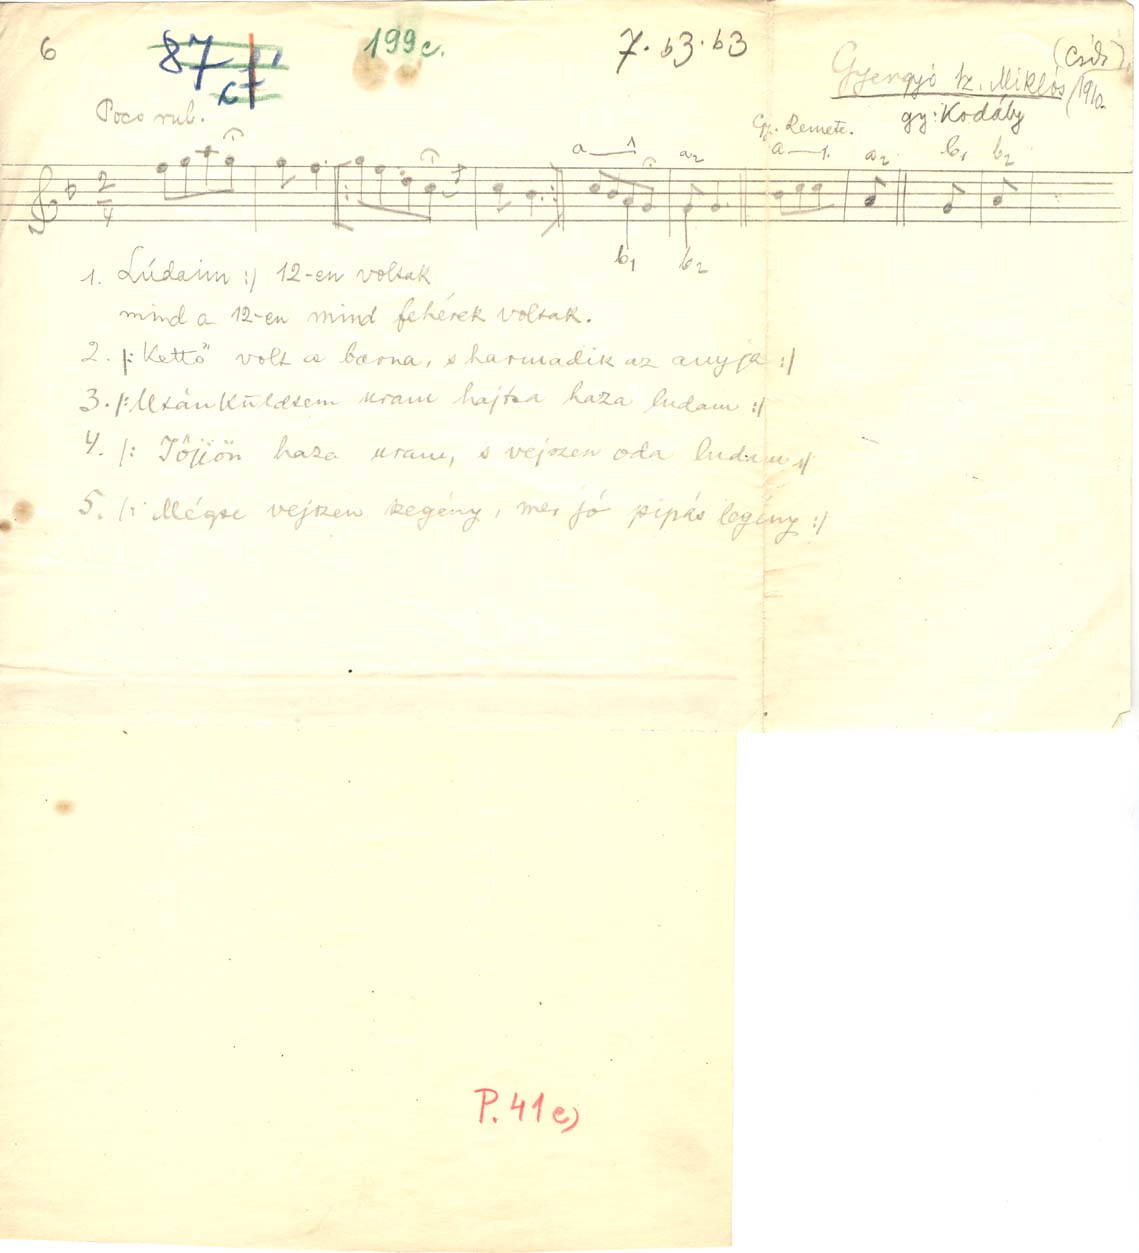 6
87
199c.
7. b3. b3
(Csík)
Gyergyó sz. Miklós
1910.
gy: Kodály
Poco rub.
Gy. Remete.
a 1 a2 a 1. a2 b1 b2
2
4
b1 b2
1. Lúdaim :/ 12-en voltak
mind a 12-en mind fehérek voltak.
2. /: Kettő volt a barna, s harmadik az anyja :/
3. /: Után küldtem uram hajtsa haza ludam :/
4. /: Jőjjön haza uram, s vejszen oda ludam :/
5. /: Mégse vejszen szegény, mer jó pipás legény :/
P. 41 e)